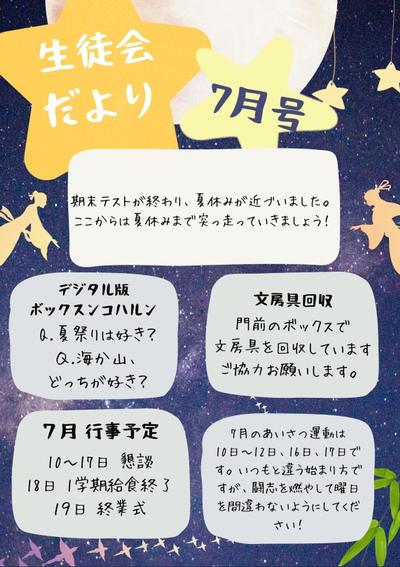 生徒会
だより
7月号
期末テストが終わり、夏休みが近づいました。
ここからは夏休みまで突っ走っていきましょう！
デジタル版
ボックスンコハルン
Q.夏祭りは好き？
Q.海か山、
どっちが好き？
文房具回収
門前のボックスで
文房具を回収しています
ご協力お願いします。
7月 行事予定
10〜17日 懇談
18日 1学期給食終了
19日 終業式
7月のあいさつ運動は
10日〜12日、16日、17日で
す。いつもと違う始まり方で
すが、闘志を燃やして曜日
を間違わないようにしてくだ
さい！